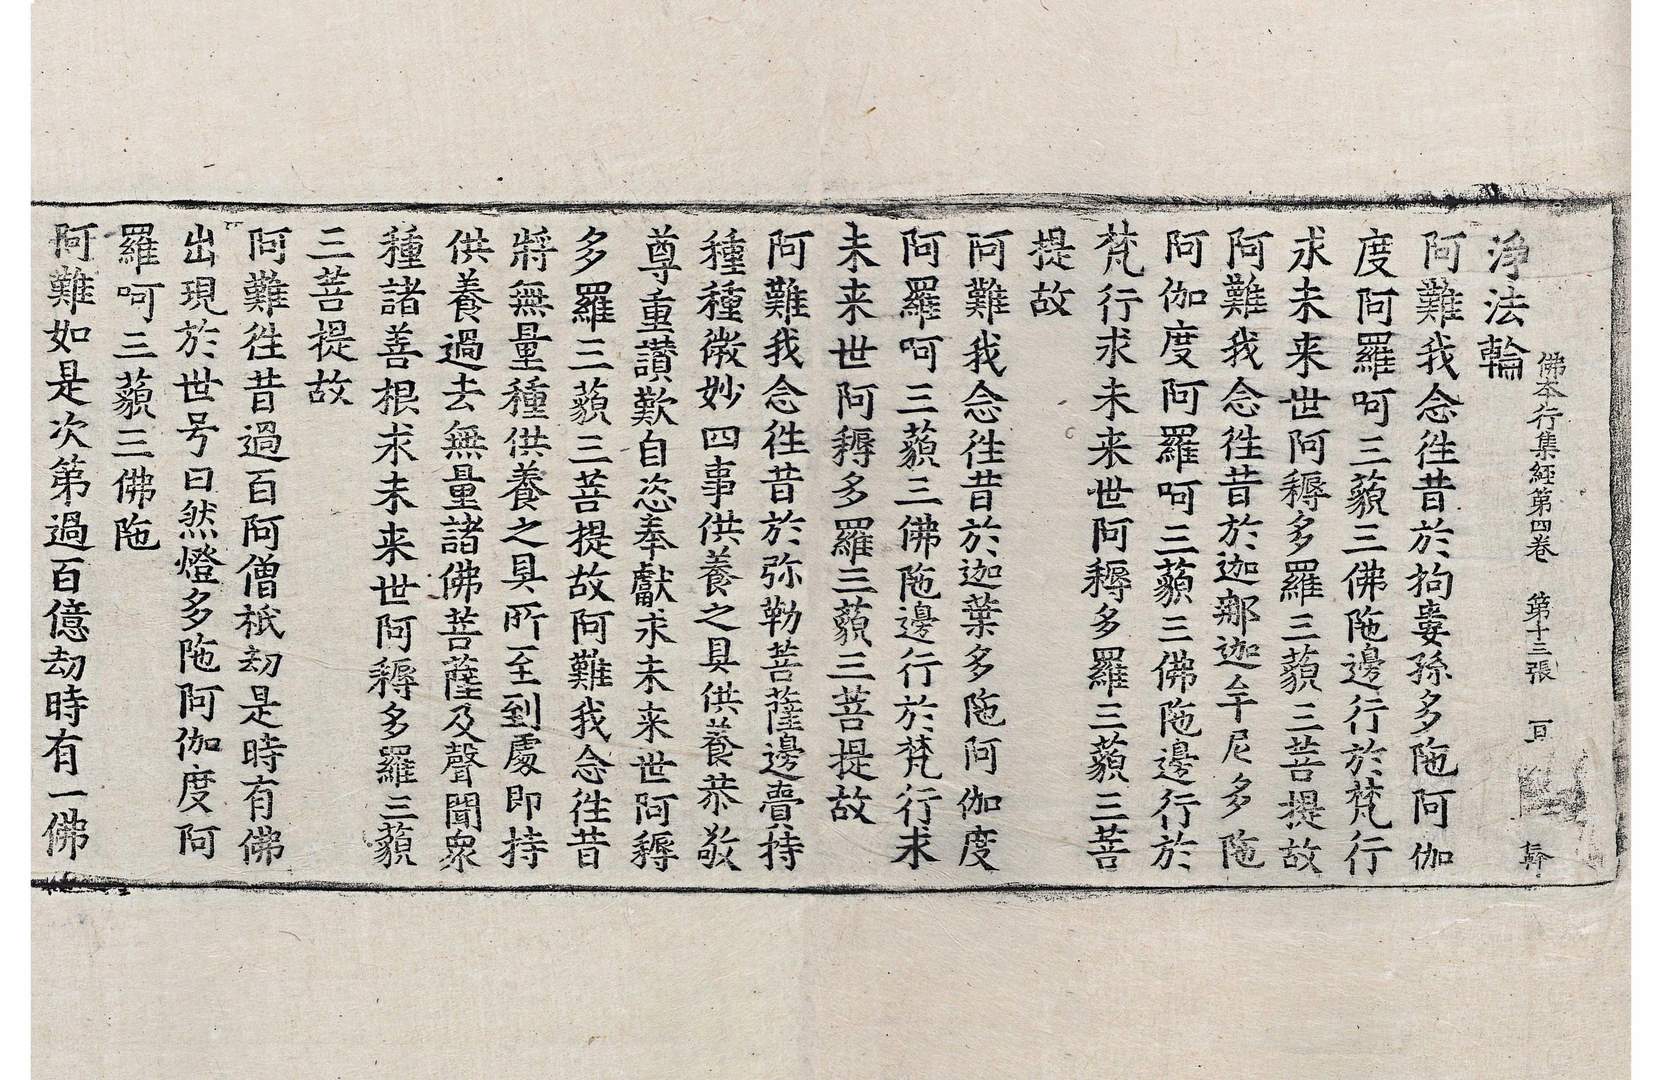 佛本行集經第四卷　第十三張　𠀇　幹
淨法輪
阿難我念徃昔於拘婁孫多陁阿伽
度阿羅呵三藐三佛陁邊行於梵行
求未来世阿耨多羅三藐三菩提故
阿難我念徃昔於迦那迦牟尼多陁
阿伽度阿羅呵三藐三佛陁邊行於
梵行求未来世阿耨多羅三藐三菩
提故
阿難我念徃昔於迦葉多陁阿伽度
阿羅呵三藐三佛陁邊行於梵行求
未来世阿耨多羅三藐三菩提故
阿難我念徃昔於弥勒菩薩邊賷持
種種微妙四事供養之具供養恭敬
尊重讃歎自恣奉獻求未来世阿耨
多羅三藐三菩提故阿難我念徃昔
將無量種供養之具所至到處即持
供養過去無量諸佛菩薩及聲聞衆
種諸善根求未来世阿耨多羅三藐
三菩提故
阿難徃昔過百阿僧祇劫是時有佛
出現於世号曰然燈多陁阿伽度阿
羅呵三藐三佛陁
阿難如是次第過百億劫時有一佛